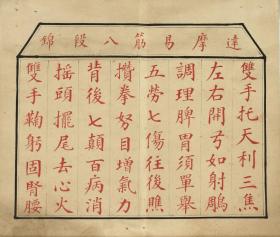 達摩易筋八段錦
雙手托天利三焦
左右開弓如射鵰
調理脾胃須單舉
五勞七傷往後瞧
攢拳努目增氣力
背後七顛百病消
搖頭擺尾去心火
雙手鞠躬固腎腰